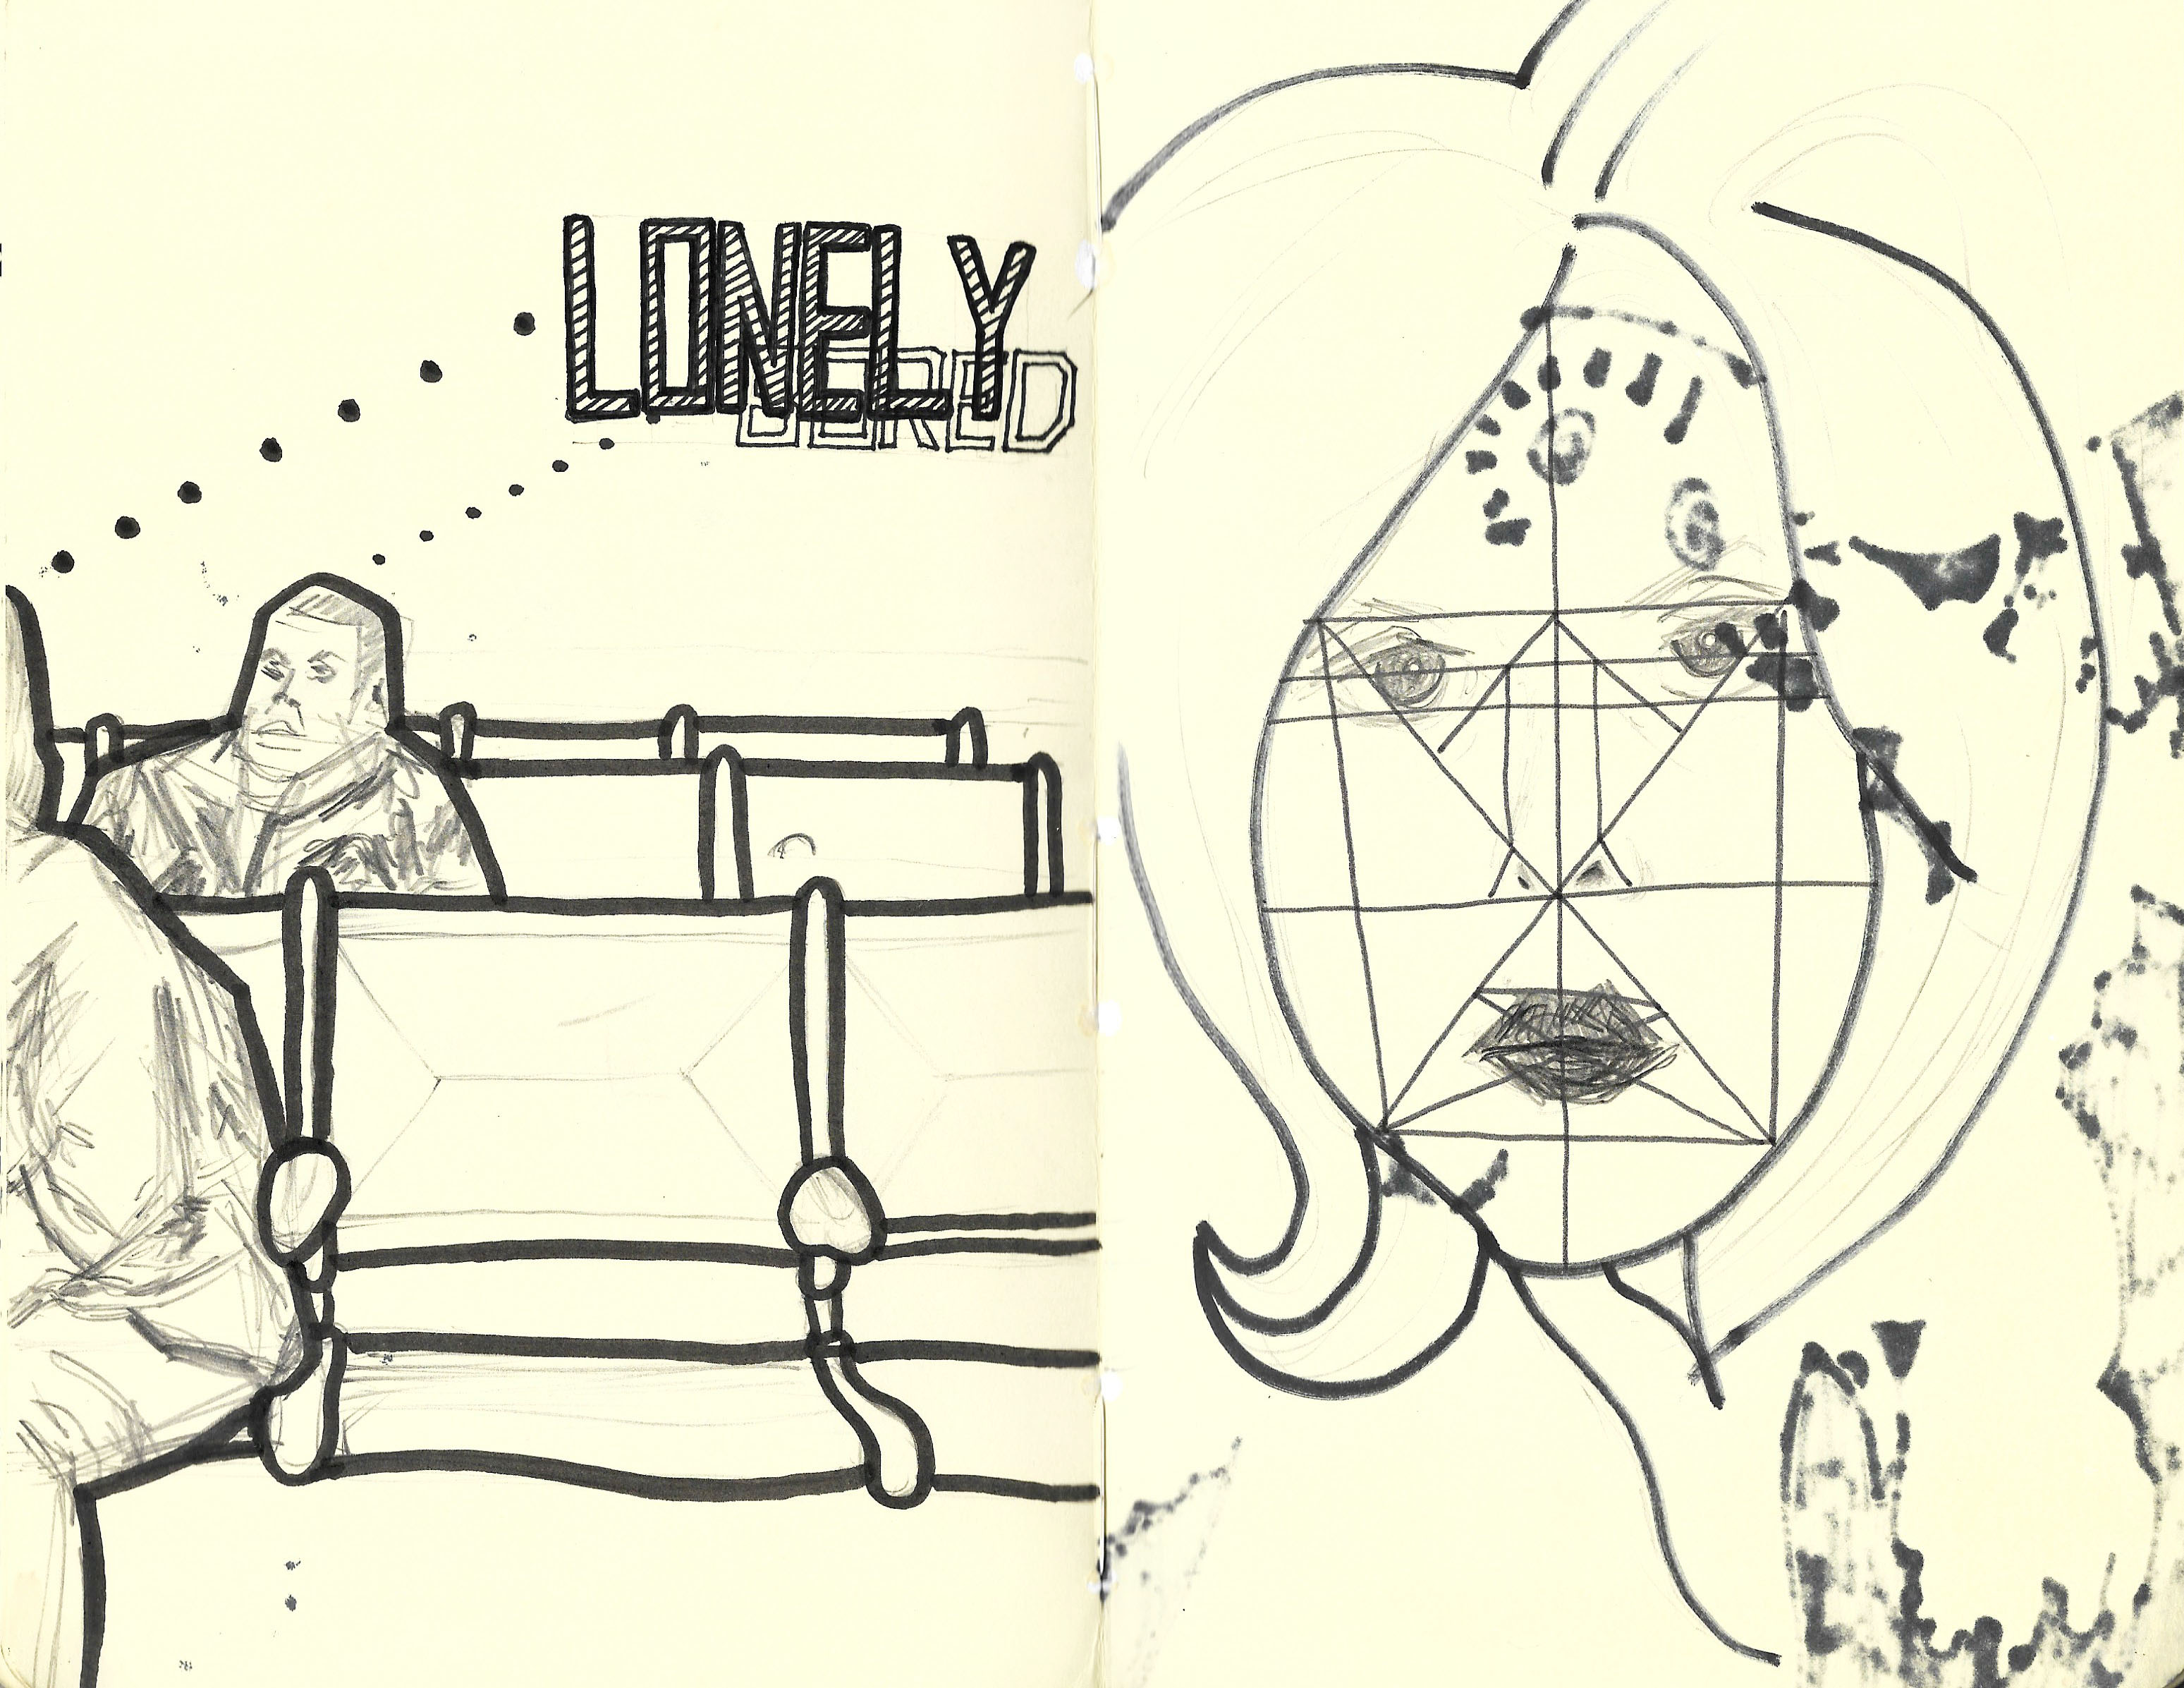 LONELY
BORED